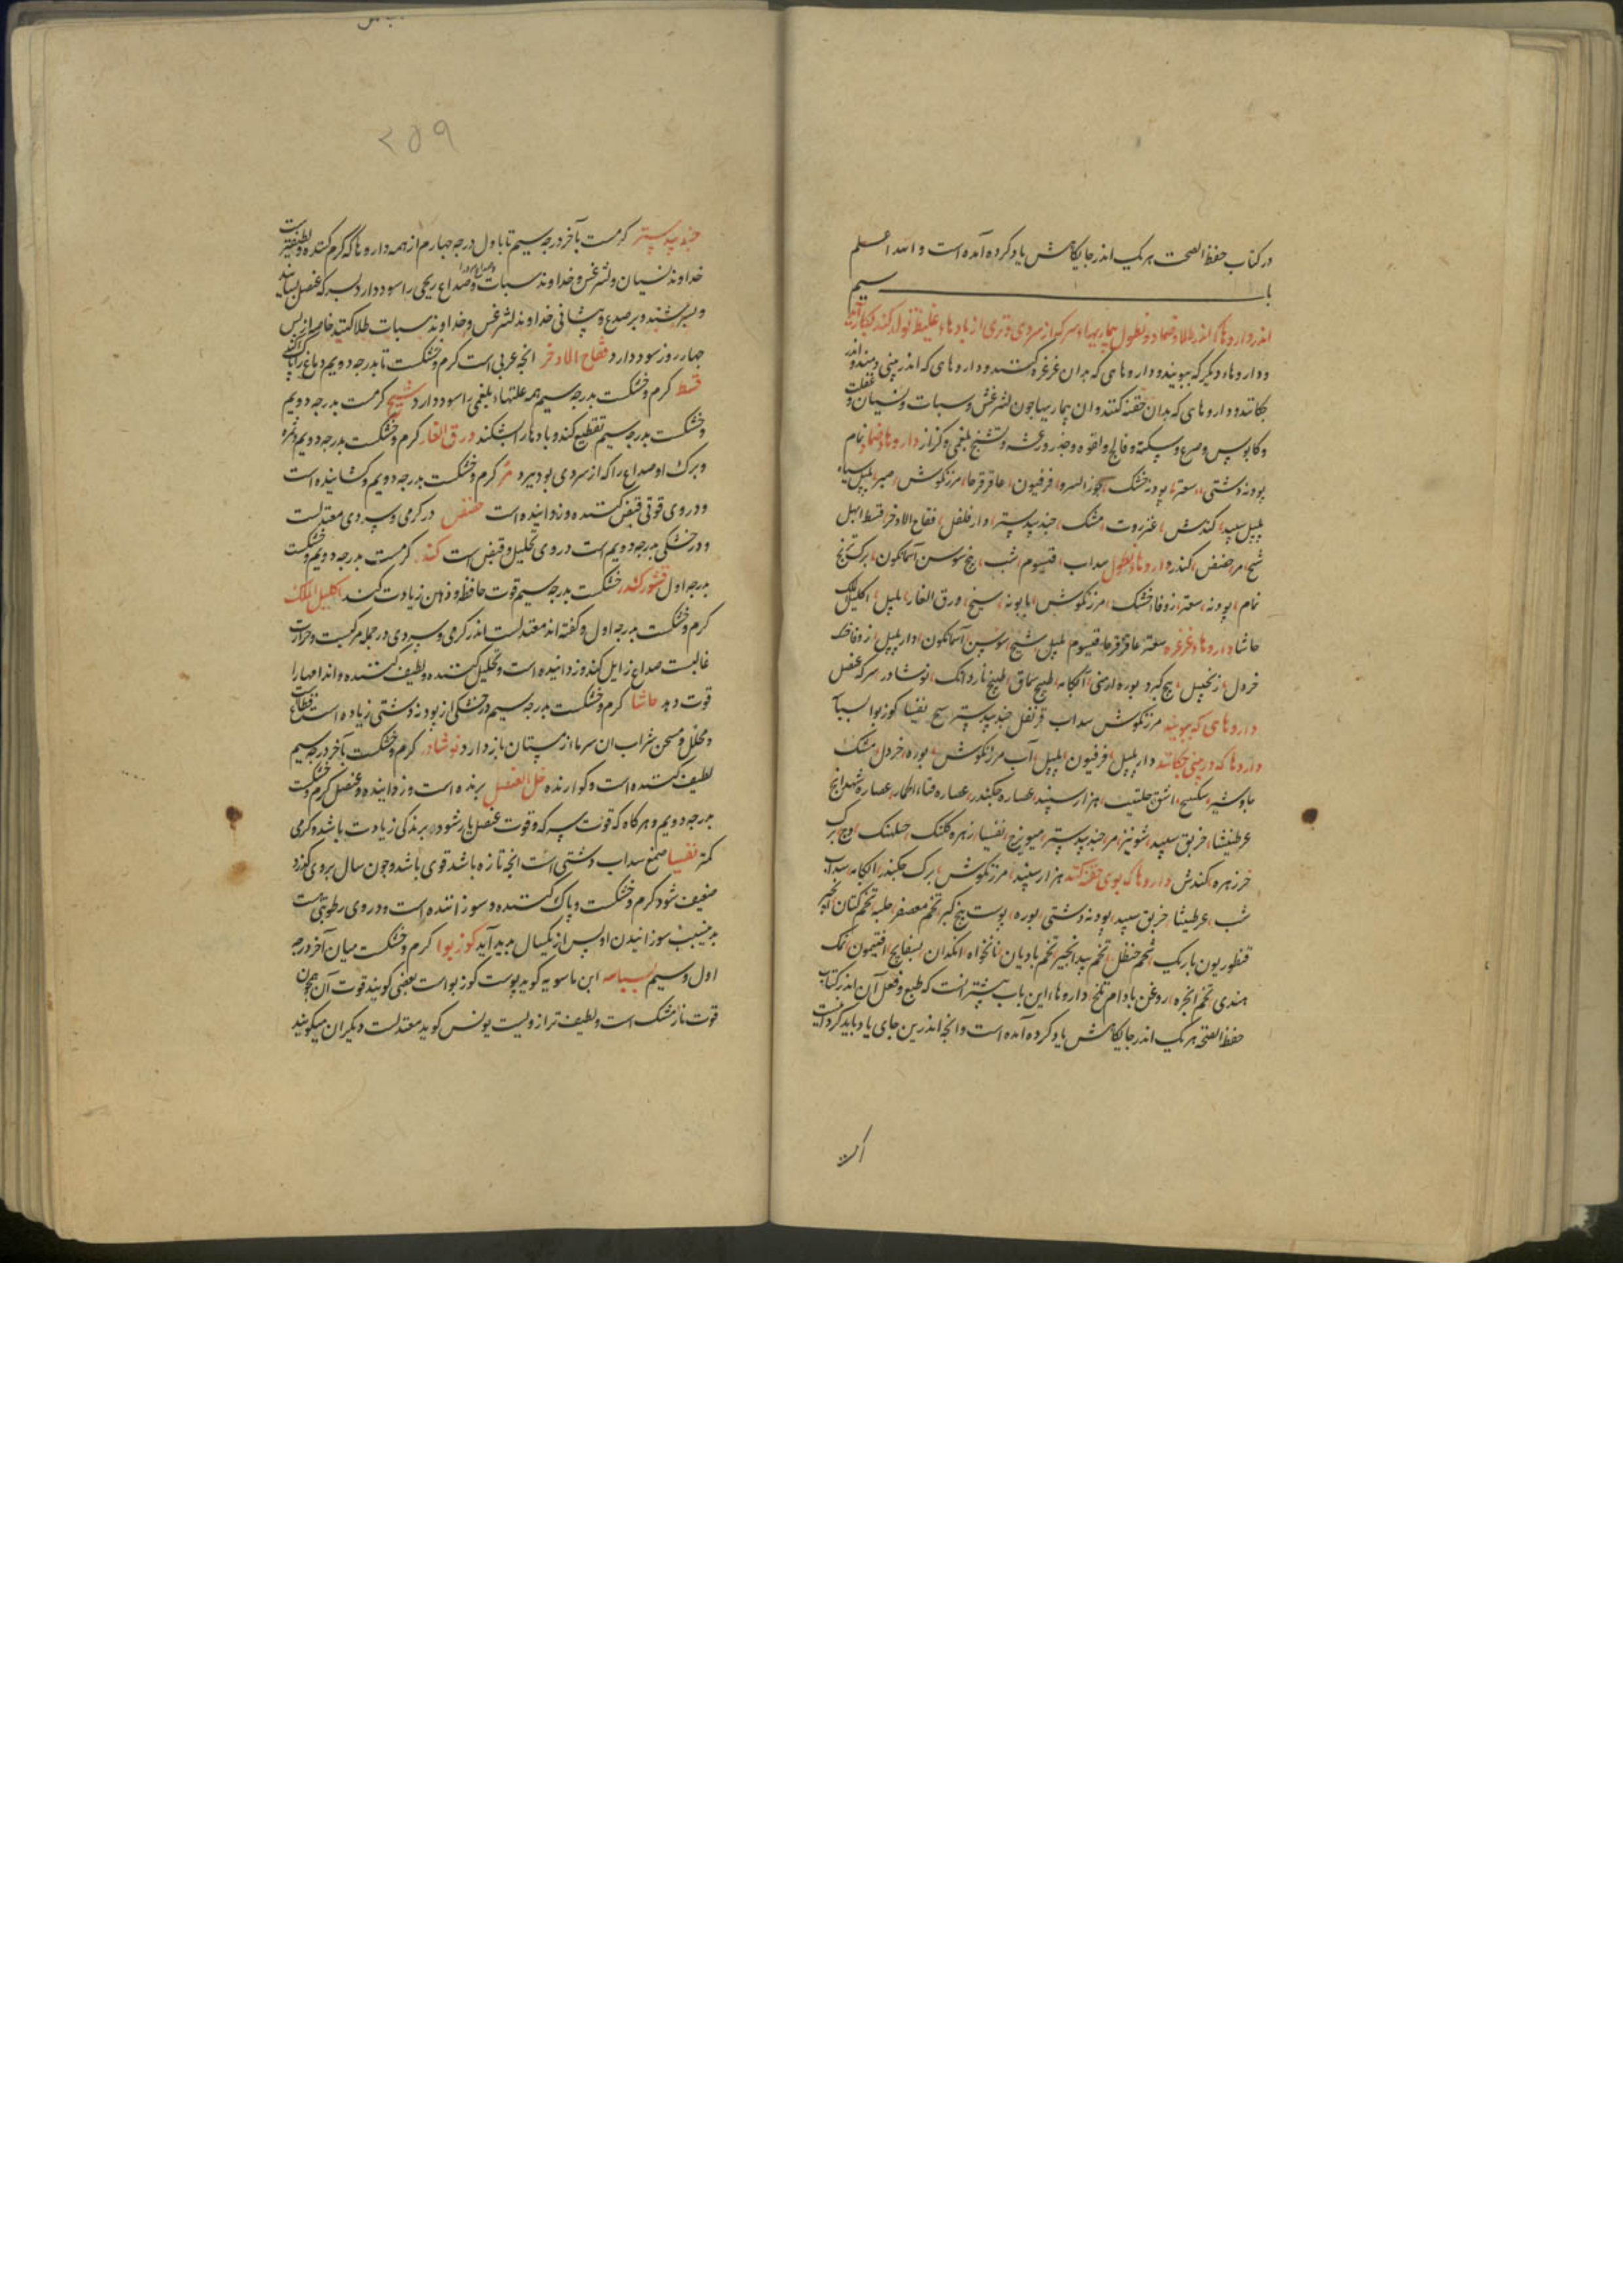 در کتاب حفظ الصحت هر یک اندر جایکاهش یاد کرده آمده است و الله اعلم
باب سیم
اندر داروها که اندر طلا و ضماد و نطول بیماریهاء سر که از سردی و تری از بادهاء غلیظ تولد کند بکار آید
و داروهاء دیکر که ببویند و داروهای که بدان غرغره کنند و داروهای که اندر بینی دمند و اندر
چکانند و داروهای که بدان حقنه کنند و ان بیماریها چون لیثرغس و سبات و نسیان و غفلت
و کابوس و صرع و سکته و فالج و لقوه و خدر و رعشه و تشنج بلغمی و کزاز داروهاء ضماد نمام
بودنه دشتی، سعتر، بودنه خشک، جوز السرو، فرفیون، عاقرقرحا، مرزنکوش، صبر، پلپل سیاه
پلپل سپید، کندش، عنزروت، مشک، جندبیدستر، دارفلفل، فقاح الاذخر، قسط، ابهل
شیح، مر، حضض، کندر، داروهاء نطول سداب، قیسوم، شب، بیخ سوسن آسمانکون، برک ترنج
نمام، بودنه، سعتر، زوفا خشک، مرزنکوش، بابونه، شیح، ورق الغار، پلپل، اکلیل الملک
حاشا، داروهاء غرغره سعتر، عاقرقرحا، قیسوم، پلپل، شیح، سوسن آسمانکون، دارپلپل، زوفا خشک
خردل، زنجبیل، بیخ کبر، بوره ارمنی، آبکامه، طبیخ سماق، طبیخ ناردانک، نوشادر، سرکه عنصل
داروهای که ببویند مرزنکوش سداب قرنفل جندبیدستر شیح تفسیا کوزبوا بسباسه
داروها که در بینی چکانند دارپلپل، فرفیون، پلپل، آب مرزنکوش، بوره، خردل، مشک
جاوشیر، سکبینج، اشق، حلتیت، هزار سپند، عصاره چکندر، عصاره قثاء الحمار، عصاره شهدانج
عرطنیثا، خربق سپید، شونیز، مر، جندبیدستر، میویزج، تفسیا، زهره کلنک، وج، برک
خرزهره، کندش داروها که بوی حقنه کنند هزار سپند، مرزنکوش، برک چکندر، آبکامه، سداب
شب، عرطنیثا، خربق سپید، بودنه دشتی، بوره، پوست بیخ کبر، تخم معصفر، حلبه، تخم کتان، انجیر
قنطوریون باریک، شحم حنظل، تخم بیدانجیر، تخم بادیان، نانخواه، انکدان، بسفایج، افتیمون، نمک
هندی، تخم انجره، روغن بادام تلخ، داروهاء این باب بیشتر انست که طبع و فعل آن اندر کتاب
حفظ الصحه هر یک اندر جایکاهش یاد کرده آمده است و انچه اندرین جای یاد باید کرد اینست
۲۵۹
جندبیدستر کرمست بآخر درجه سیم تا باول درجه چهارم از همه داروها که کرم کننده لطیفترست
خداوند نسیان و لیثرغس و خداوند سبات و صداع ریحی را سود دارد بسرکه عنصل بسایند
و بسرشند و بر صدغ و پیشانی خداوند لیثرغس و خداوند سبات طلا کنند خاصه از پس
چهار روز سود دارد فقاح الاذخر انچه عربی است کرم و خشکست تا بدرجه دویم دماغ را پاک کند
قسط کرم و خشکست بدرجه سیم همه علتهاء بلغمی را سود دارد شیح کرمست بدرجه دویم
و خشکست بدرجه سیم تقطیع کند و بادها را بشکند ورق الغار کرم و خشکست بدرجه دویم و ثمره
و برک او صداع را که از سردی بود ببرد مر کرم و خشکست بدرجه دویم و کشاینده است
و در وی قوتی قبض کننده و زداینده است حضض در کرمی و سردی معتدلست
و در خشکی بدرجه دویم است در وی تحلیل و قبض است کندر کرمست بدرجه دویم و خشکست
بدرجه اول قشور کندر خشکست بدرجه سیم قوت حافظه و ذهن زیادت کند اکلیل الملک
کرم و خشکست بدرجه اول و کفته اند معتدلست اندر کرمی و سردی در جمله مرکبست و حرارت
غالبست صداع زایل کند و زداننده است و تحلیل کننده و لطیف کننده و اندامها را
قوت دهد حاشا کرم و خشکست بدرجه سیم در خشکی از بودنه دشتی زیاده است قطاع
و محلل و مسخن شراب ان سرما از پستان باز دارد نوشادر کرم و خشکست بآخر درجه سیم
لطیف کننده است و کوارنده خل العنصل برنده است و زداینده و عنصل کرم و خشکست
بدرجه دویم و هرکاه که قوت سرکه و قوت عنصل یار شود در برندکی زیادت باشد و کرمی
کمتر تفسیا صمغ سداب دشتی است انچه تازه باشد قوی باشد و چون سال بروی کذرد
ضعیف شود کرم و خشکست و پاک کننده و سوزاننده است و در وی رطوبتی است
بدین سبب سوزانیدن او پس از یکسال بدید آید کوزبوا کرم و خشکست میان آخر درجه
اول و سیم بسباسه ابن ماسویه کوید پوست کوزبوا است بعضی کویند قوت آن همچون
قوت نارمشک است و لطیف تر از ویست یونس کوید معتدلست دیکران میکویند